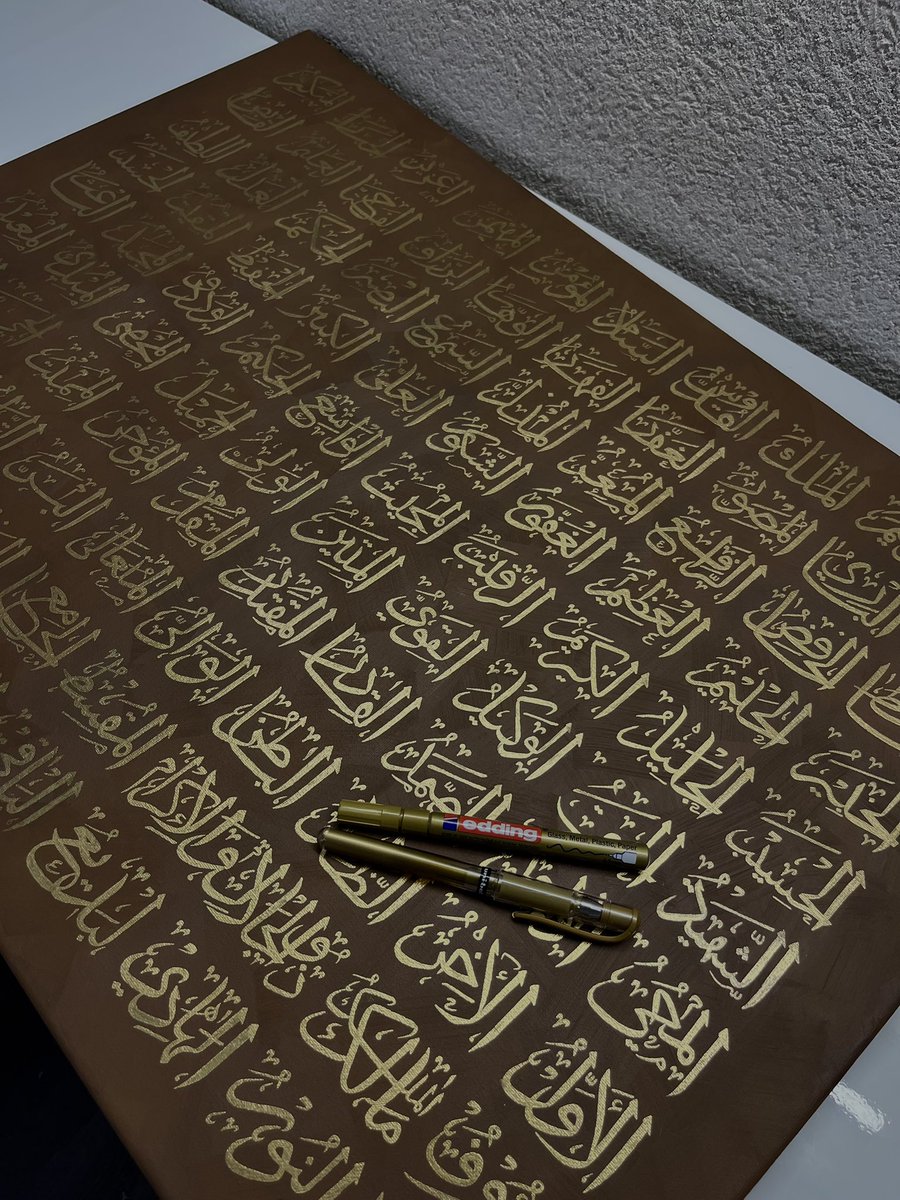 الملك القدوس السلام المؤمن المهيمن العزيز الجبار المتكبر
البارئ المصور الغفار القهار الوهاب الرزاق الفتاح العليم القابض
الخافض الرافع المعز المذل السميع البصير الحكم العدل اللطيف
الحليم العظيم الغفور الشكور العلي الكبير الحفيظ المقيت الحسيب
الحسيب الجليل الكريم الرقيب المجيب الواسع الحكيم الودود المجيد الباعث
الشهيد الوكيل القوي المتين الولي الحميد المحصي المبدئ المعيد
المحيي الصمد القادر المقتدر المقدم المؤخر
الأول الآخر الباطن الوالي المتعالي البر
مالك الملك ذو الجلال والإكرام المقسط الجامع
النور الهادي البديع الباقي
edding
Glass, Metal, Plastic, Paper